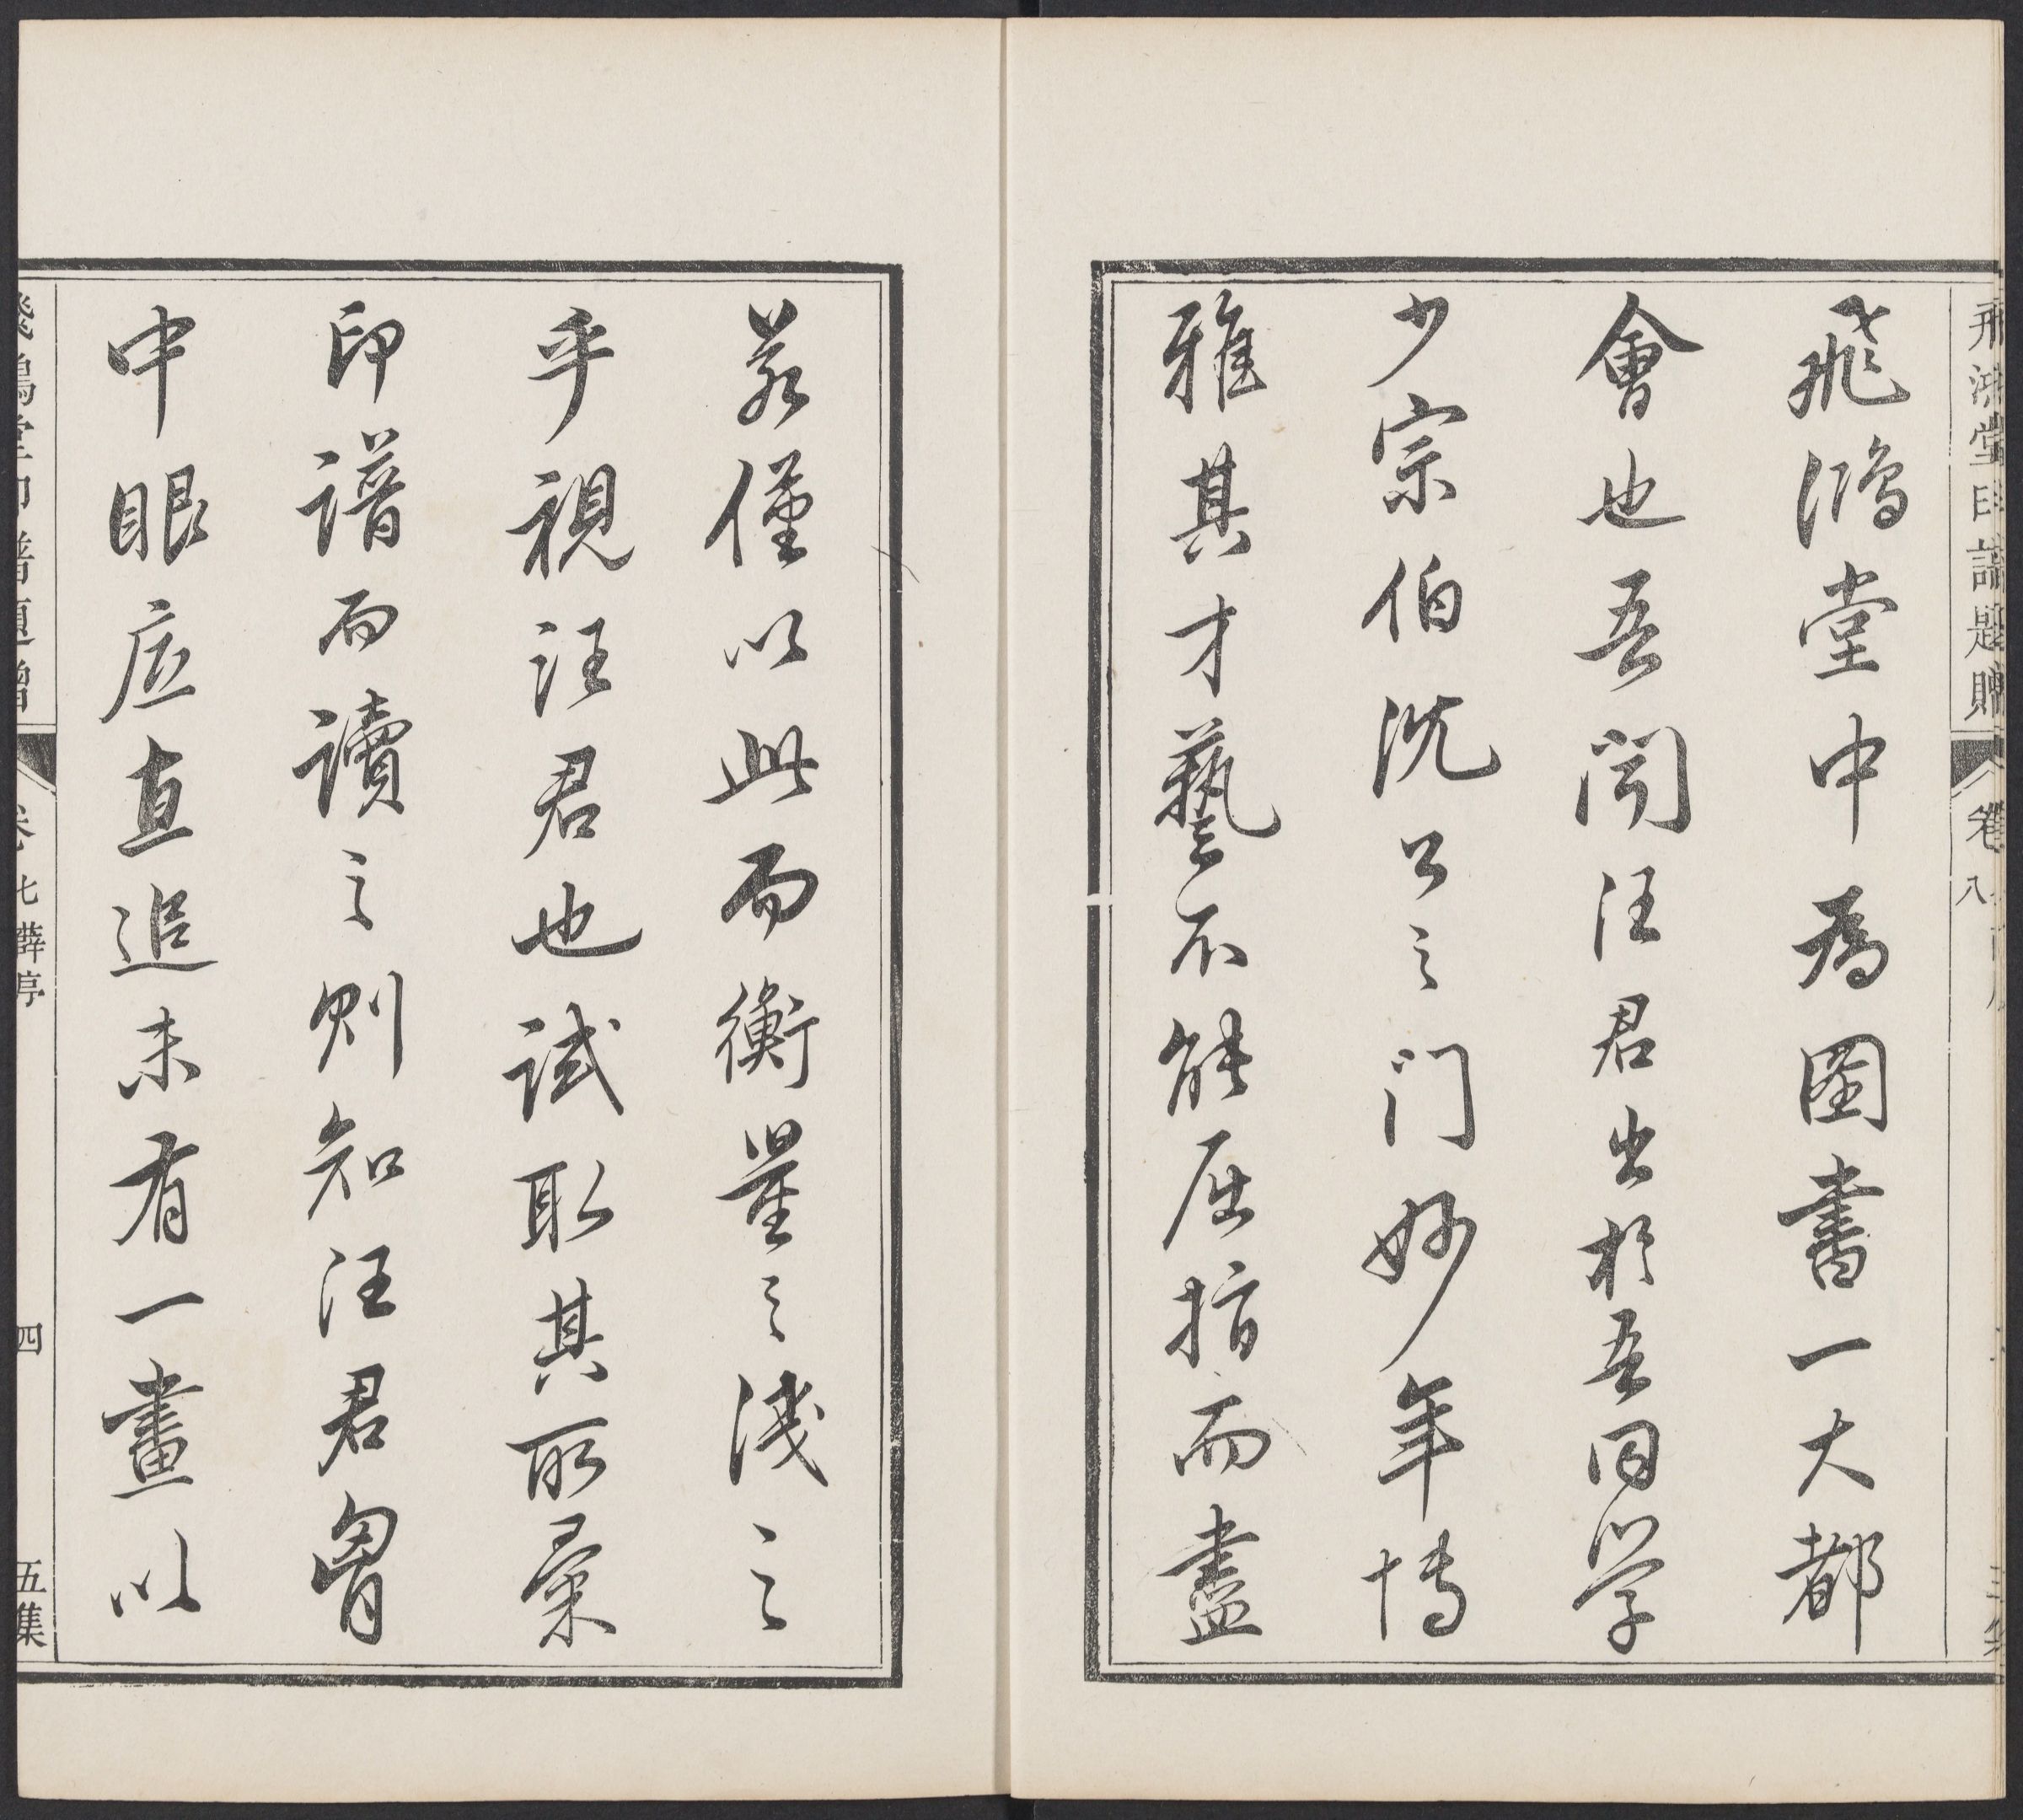 飛鴻堂印譜題贈
卷八
飛鴻堂中為圖書一大都
會也吾聞汪君出於吾同學
少宗伯沈公之門妙年博
雅其才藝不能屈指而盡
若僅以此而衡量之淺之
乎視汪君也試取其所彙
印譜而讀之則知汪君胷
中眼底直追未有一畫以
飛鴻堂印譜題贈
卷七薜亭
四
五集